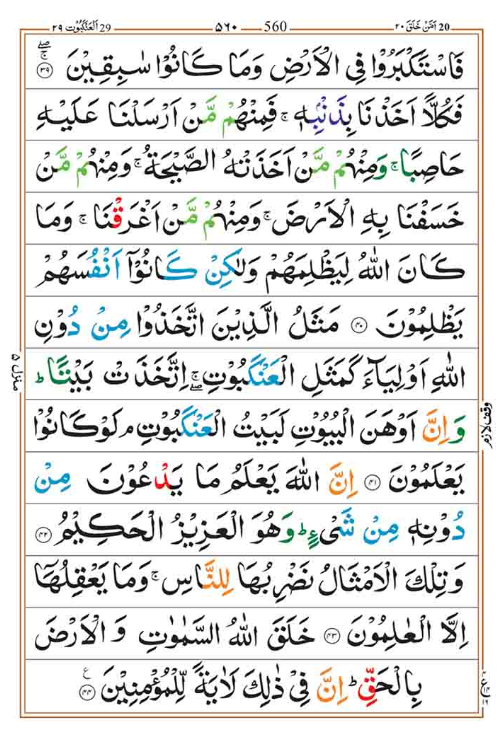 اَمَّنْ خَلَقَ ٢٠ 20 ٥٦٠ 560 اَلْعَنْكَبُوْت ٢٩ 29
فَاسْتَكْبَرُوْا فِي الْاَرْضِ وَمَا كَانُوْا سٰبِقِيْنَ ۚۖ ﴿٣٩﴾
فَكُلًّا اَخَذْنَا بِذَنْۢبِهٖ ۚ فَمِنْهُمْ مَّنْ اَرْسَلْنَا عَلَيْهِ
حَاصِبًا ۚ وَمِنْهُمْ مَّنْ اَخَذَتْهُ الصَّيْحَةُ ۚ وَمِنْهُمْ مَّنْ
خَسَفْنَا بِهِ الْاَرْضَ ۚ وَمِنْهُمْ مَّنْ اَغْرَقْنَا ۚ وَمَا
كَانَ اللّٰهُ لِيَظْلِمَهُمْ وَلٰكِنْ كَانُوْٓا اَنْفُسَهُمْ
يَظْلِمُوْنَ ﴿٤٠﴾ مَثَلُ الَّذِيْنَ اتَّخَذُوْا مِنْ دُوْنِ
اللّٰهِ اَوْلِيَآءَ كَمَثَلِ الْعَنْكَبُوْتِ ۚۖ اِتَّخَذَتْ بَيْتًا ؕ
وَاِنَّ اَوْهَنَ الْبُيُوْتِ لَبَيْتُ الْعَنْكَبُوْتِ ۘ لَوْ كَانُوْا
يَعْلَمُوْنَ ﴿٤١﴾ اِنَّ اللّٰهَ يَعْلَمُ مَا يَدْعُوْنَ مِنْ
دُوْنِهٖ مِنْ شَيْءٍ ؕ وَهُوَ الْعَزِيْزُ الْحَكِيْمُ ﴿٤٢﴾
وَتِلْكَ الْاَمْثَالُ نَضْرِبُهَا لِلنَّاسِ ۚ وَمَا يَعْقِلُهَاۤ
اِلَّا الْعٰلِمُوْنَ ﴿٤٣﴾ خَلَقَ اللّٰهُ السَّمٰوٰتِ وَالْاَرْضَ
بِالْحَقِّ ؕ اِنَّ فِيْ ذٰلِكَ لَاٰيَةً لِّلْمُؤْمِنِيْنَ ﴿٤٤﴾ ع
منزل ٥
وقف لازم